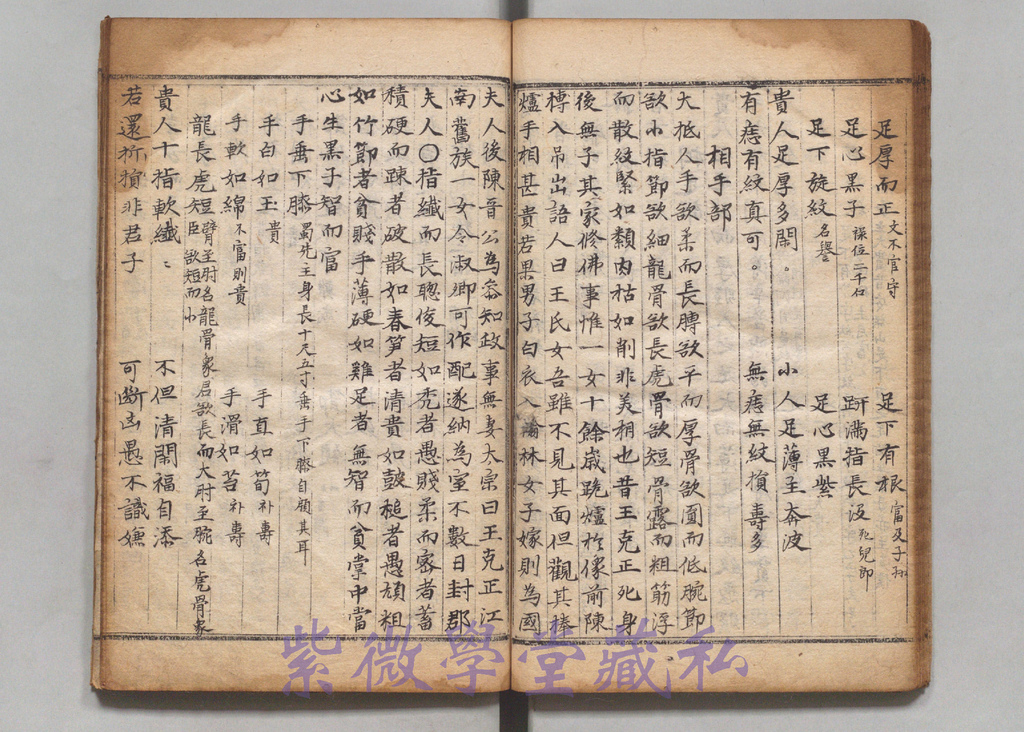 足厚而正 文不官守 足下有根 富及子孫
足心黑子 謀位二千石 趼滿指長没
足下旋紋 名譽 足心黑紫
貴人足厚多閑。 小人足薄主奔波
有痣有紋真可。 無痣無紋損壽多
相手部
大抵人手欲柔而長膊欲平而厚骨欲圓而低腕節
欲小指節欲細龍骨欲長虎骨欲短骨露而粗筋浮
而散紋緊如纇肉枯如削非美相也昔王克正死身
後無子其家修佛事惟一女十餘歲跪爐於像前陳
榑入吊出語人曰王氏女吾雖不見其面但觀其捧
爐手相甚貴若果男子白衣入瀚林女子嫁則為國
夫人後陳晉公為叅知政事無妻太宗曰王克正江
南舊族一女令淑卿可作配遂納為室不數日封郡
夫人〇指纖而長聰俊短如禿者愚賤柔而密者蓄
積硬而踈者破散如春笋者清貴如皷槌者愚頑粗
如竹節者貧賤手薄硬如雞足者無智而貧掌中當
心生黑子智而富
手垂下膝 蜀先主身長十尺五寸垂手下膝自顧其耳
手白如玉 貴 手直如筍 補壽
手軟如綿 不富則貴 手滑如苔 補壽
龍長虎短 臂至肘名龍骨象君欲長而大肘至腕名虎骨象臣欲短而小
貴人十指軟纖：不但清閑福自添
若還折損非君子 可斷凶愚不識嫌
紫微學堂藏私